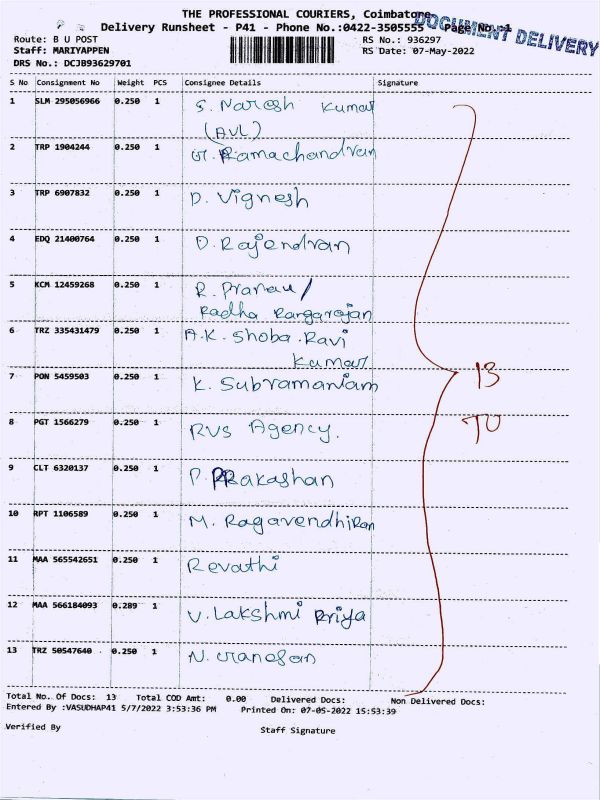 THE PROFESSIONAL COURIERS, Coimbatore
Delivery Runsheet - P41 - Phone No.:0422-3505555 - Page No.:1
DOCUMENT DELIVERY
Route: B U POST
RS No.: 936297
Staff: MARIYAPPEN
RS Date: 07-May-2022
DRS No.: DCJB93629701
S No Consignment No Weight PCS Consignee Details Signature
1 SLM 295056966 0.250 1 S. Naresh Kumar
(AVL)
2 TRP 1904244 0.250 1 Ramachandran
3 TRP 6907832 0.250 1 D. Vignesh
4 EDQ 21400764 0.250 1 D. Rajendran
5 KCM 12459268 0.250 1 R. Pranav /
Radha Rangarajan
6 TRZ 335431479 0.250 1 A.K. Shoba. Ravi
Kumar
7 PON 5459503 0.250 1 K. Subramaniam
13
8 PGT 1566279 0.250 1 RVS Agency.
9 CLT 6320137 0.250 1 P. Prakashan
10 RPT 1106589 0.250 1 M. Ragavendhiran
11 MAA 565542651 0.250 1 Revathi
12 MAA 566184093 0.289 1 V. Lakshmi Priya
13 TRZ 50547640 0.250 1 N.
Total No. Of Docs: 13 Total COD Amt: 0.00 Delivered Docs: Non Delivered Docs:
Entered By :VASUDHAP41 5/7/2022 3:53:36 PM Printed On: 07-05-2022 15:53:39
Verified By
Staff Signature